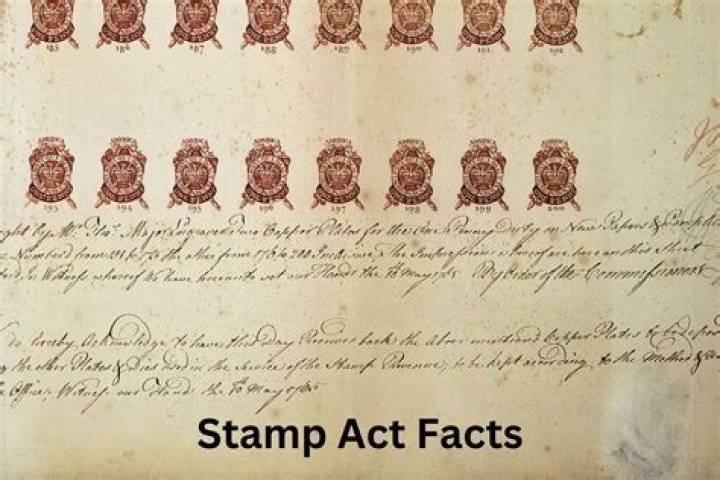 185 186 187 188 189 190 191 192
AMERICA AMERICA AMERICA AMERICA AMERICA AMERICA AMERICA AMERICA
193 194 195 196 197 198 199 200
ught by Mr. Thos. Major Engraver Two Copper Plates for the One Penny Duty on News Papers &
Numbered from to 175 the other from 176 to 200 Inclusive, the Impressions whereof are here on this Sheet
In Witness whereof We have hereunto set our Hands the May 1765 By Order of the Commissioners
do hereby Acknowledge to have this Day Received back the above mentioned Copper Plates to be
the other Plates & Dies used in the Service of the Stamp Revenue, to be kept according to the Method &
Office, Witness our Hand the May 1765
Stamp Act Facts